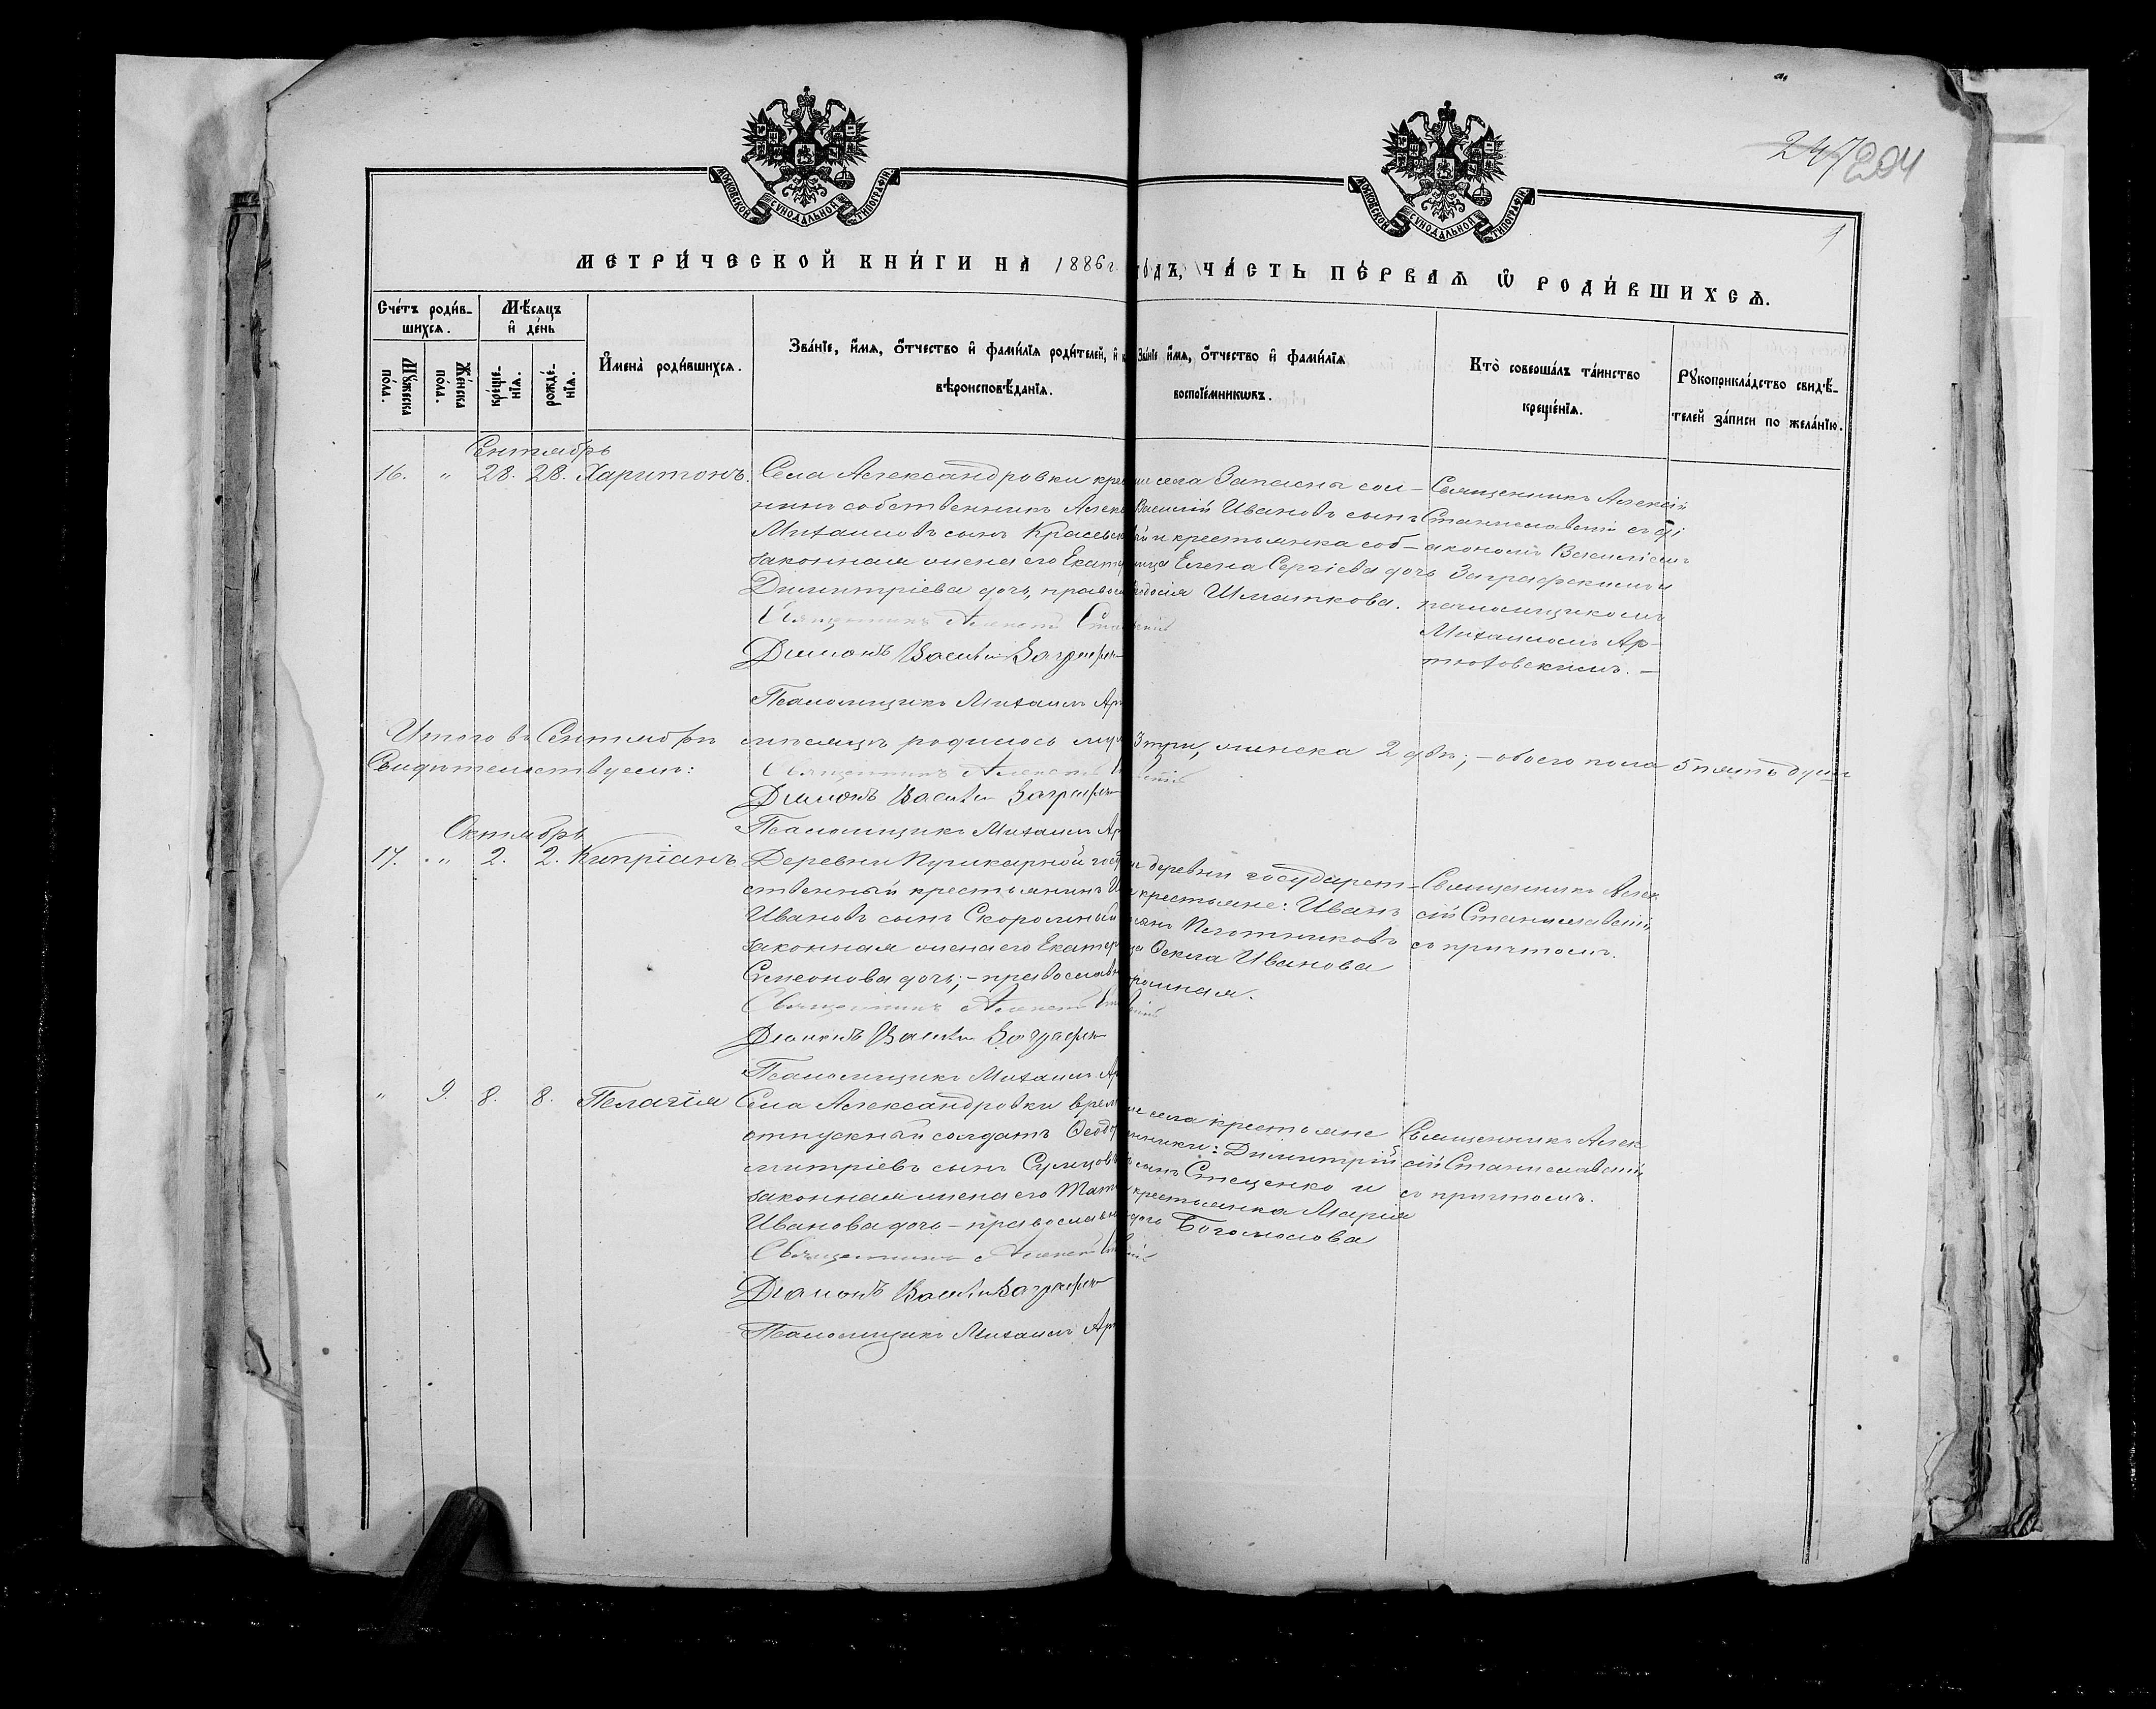 247 204
1
МОСКОВСКОЙ СѴНОДАЛЬНОЙ ТИПОГРАФІИ
МОСКОВСКОЙ СѴНОДАЛЬНОЙ ТИПОГРАФІИ
МЕТРИ́ЧЕСКОЙ КНИ́ГИ НА 1886 г. го́дъ, ЧА́СТЬ ПЕ́РВАѦ Ѿ РОДИ́ВШИХСѦ.
Сче́тъ роди́в-
шихсѧ.
Мѣ́сѧцъ
и҆ де́нь
Мꙋ́жеска по́ла.
Же́нска по́ла.
креще́-
нїѧ.
рожде́-
нїѧ.
И҆мена̀ роди́вшихсѧ.
Зва́нїе, и҆́мѧ, ѻ҆́тчество и҆ фами́лїѧ роди́телей, и҆ к
вѣроисповѣ́данїѧ.
Зва́нїе и҆́мѧ, ѻ҆́тчество и҆ фами́лїѧ
воспрїе́мникѡвъ.
Кто̀ соверша́лъ та́инство
креще́нїѧ.
Рꙋкоприкла́дство свидѣ́-
телей за́писи по жела́нїю.
Сентябрь
16. " 28. 28. Харитонъ.
Села Александровки кре
нинъ собственникъ Алек
Михаиловъ сынъ Красьс
законная жена его Екате
Димитріева дочь, правос
Священникъ Алексій Ста
Діаконъ Василій Заграфск
Псаломщикъ Михаилъ Ар
села Запасны сол-
Василій Ивановъ сынъ
и крестьянка соб-
Елена Сергіева дочь
Шматкова.
Священникъ Алексій
Станиславскій съ ді
акономъ Василіемъ
Заграфскимъ и
псаломщикомъ
Михаиломъ Ар-
тюховскимъ. —
Итого въ Сентябрѣ мѣсяцѣ родилось му 3 три, женска 2 двѣ; — обоего пола 5 пять душъ
Свидѣтельствуемъ:
Священникъ Алексій
Діаконъ Василій Заграфск
Псаломщикъ Михаилъ Ар
Октябрь
17. " 2. 2. Кипріанъ
Деревни Пушкарной гос
ственный крестьянинъ
Ивановъ сынъ Скоромный
законная жена его Екатер
Симеонова дочь; — православн
Священникъ Алексій
Діаконъ Василій Заграфск
Псаломщикъ Михаилъ Ар
деревни государст-
крестьяне: Иванъ
Плотниковъ
Ѳекла Иванова
ромная.
Священникъ Алек
сій Станиславскій
съ причтомъ.
" 9. 8. 8. Пелагія
Села Александровки врем
отпускный солдатъ Ѳеодо
митріевъ сынъ Сумцовъ
законная жена его Мат
Иванова дочь — православн
Священникъ Алексій
Діаконъ Василій Заграфск
Псаломщикъ Михаилъ Ар
села крестьяне
Димитрій
сынъ Стеценко и
крестьянка Марія
дочь Богомолова
Священникъ Алек
сій Станиславскій
съ причтомъ.